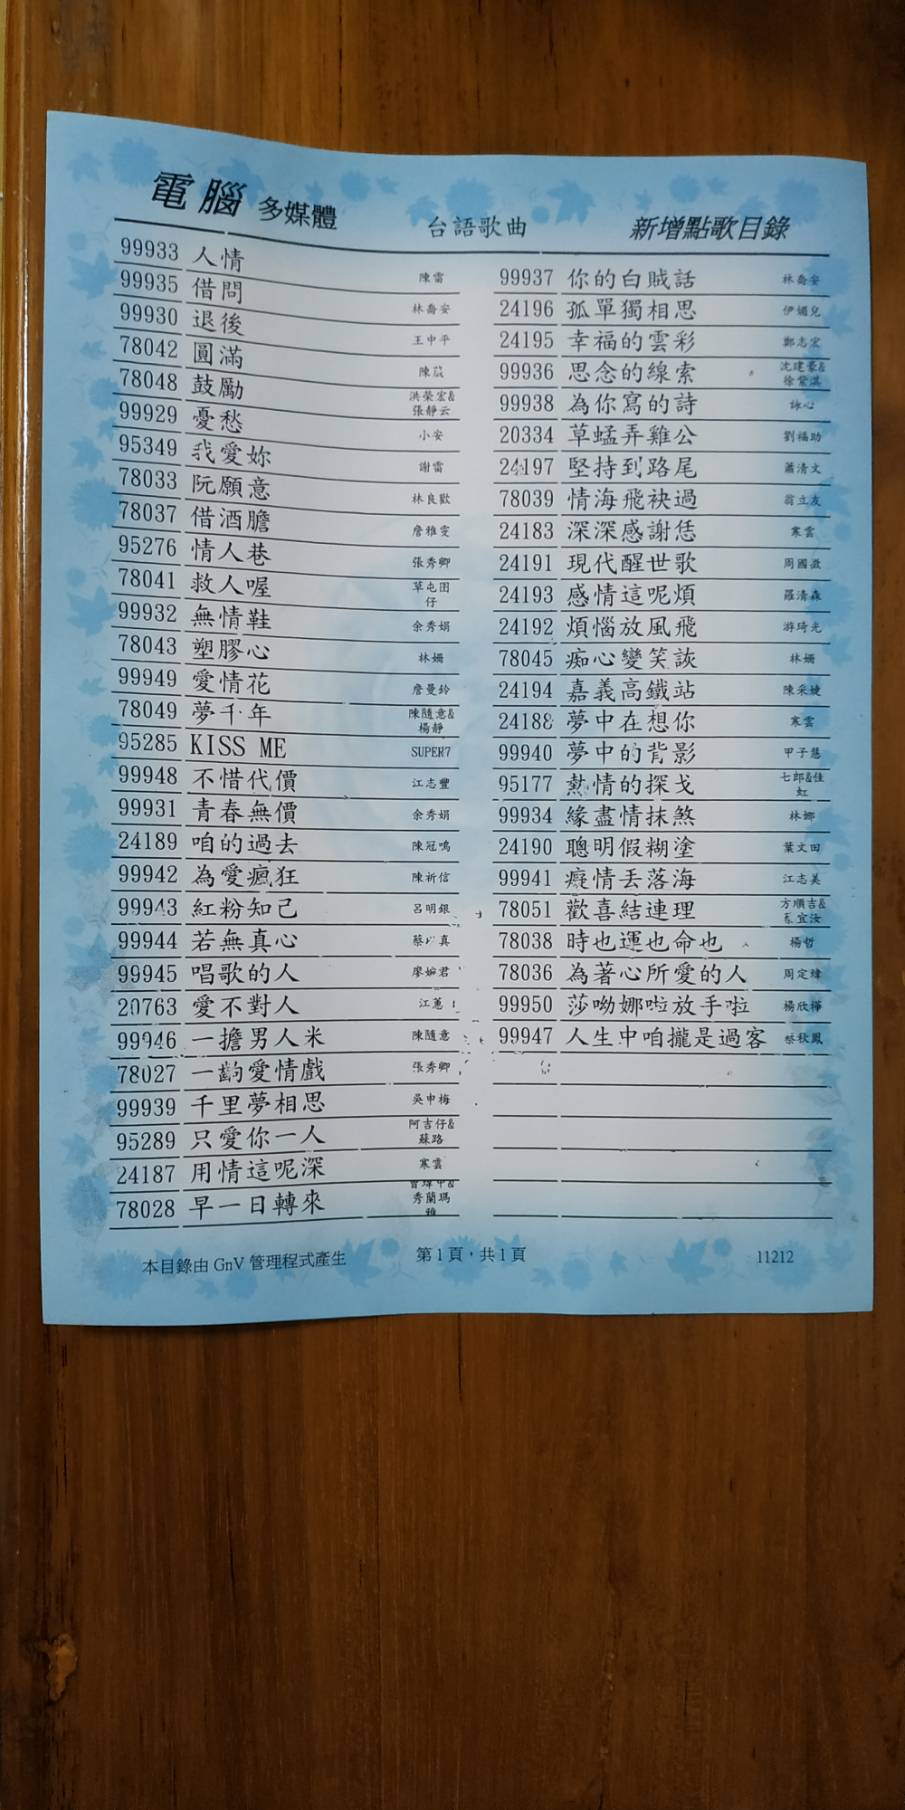 電腦 多媒體 台語歌曲 新增點歌目錄
99933 人情 陳雷
99935 借問 林喬安
99930 退後 王中平
78042 圓滿
78048 鼓勵 洪榮宏&張靜云
99929 憂愁 小安
95349 我愛妳 謝雷
78033 阮願意 林良歡
78037 借酒膽 詹雅雯
95276 情人巷 張秀卿
78041 救人喔 草屯囝仔
99932 無情鞋 余秀娟
78043 塑膠心 林姍
99949 愛情花 詹曼鈴
78049 夢千年 陳隨意&楊靜
95285 KISS ME SUPER7
99948 不惜代價 江志豐
99931 青春無價 余秀娟
24189 咱的過去 陳冠鳴
99942 為愛瘋狂 陳祈信
99943 紅粉知己 呂明銀
99944 若無真心
99945 唱歌的人
20763 愛不對人 江蕙
99946 一擔男人米 陳隨意
78027 一齣愛情戲 張秀卿
99939 千里夢相思 吳申梅
95289 只愛你一人 阿吉仔&蘇路
24187 用情這呢深 寒雲
78028 早一日轉來 秀蘭瑪雅
99937 你的白賊話 林喬安
24196 孤單獨相思 伊媚兒
24195 幸福的雲彩 鄭志宏
99936 思念的線索 沈建豪&徐紫淇
99938 為你寫的詩 詠心
20334 草蜢弄雞公 劉福助
24197 堅持到路尾 蕭清文
78039 情海飛袂過 翁立友
24183 深深感謝恁 寒雲
24191 現代醒世歌
24193 感情這呢煩 羅清森
24192 煩惱放風飛 游琦光
78045 痴心變笑詼 林姍
24194 嘉義高鐵站 陳采婕
24188 夢中在想你 寒雲
99940 夢中的背影 甲子慧
95177 熱情的探戈 七郎&佳虹
99934 緣盡情抹煞 林娜
24190 聰明假糊塗 葉文田
99941 癡情丟落海 江志美
78051 歡喜結連理
78038 時也運也命也 楊哲
78036 為著心所愛的人
99950 莎呦娜啦放手啦 楊欣樺
99947 人生中咱攏是過客 蔡秋鳳
本目錄由 GnV 管理程式產生 第1頁，共1頁 11212